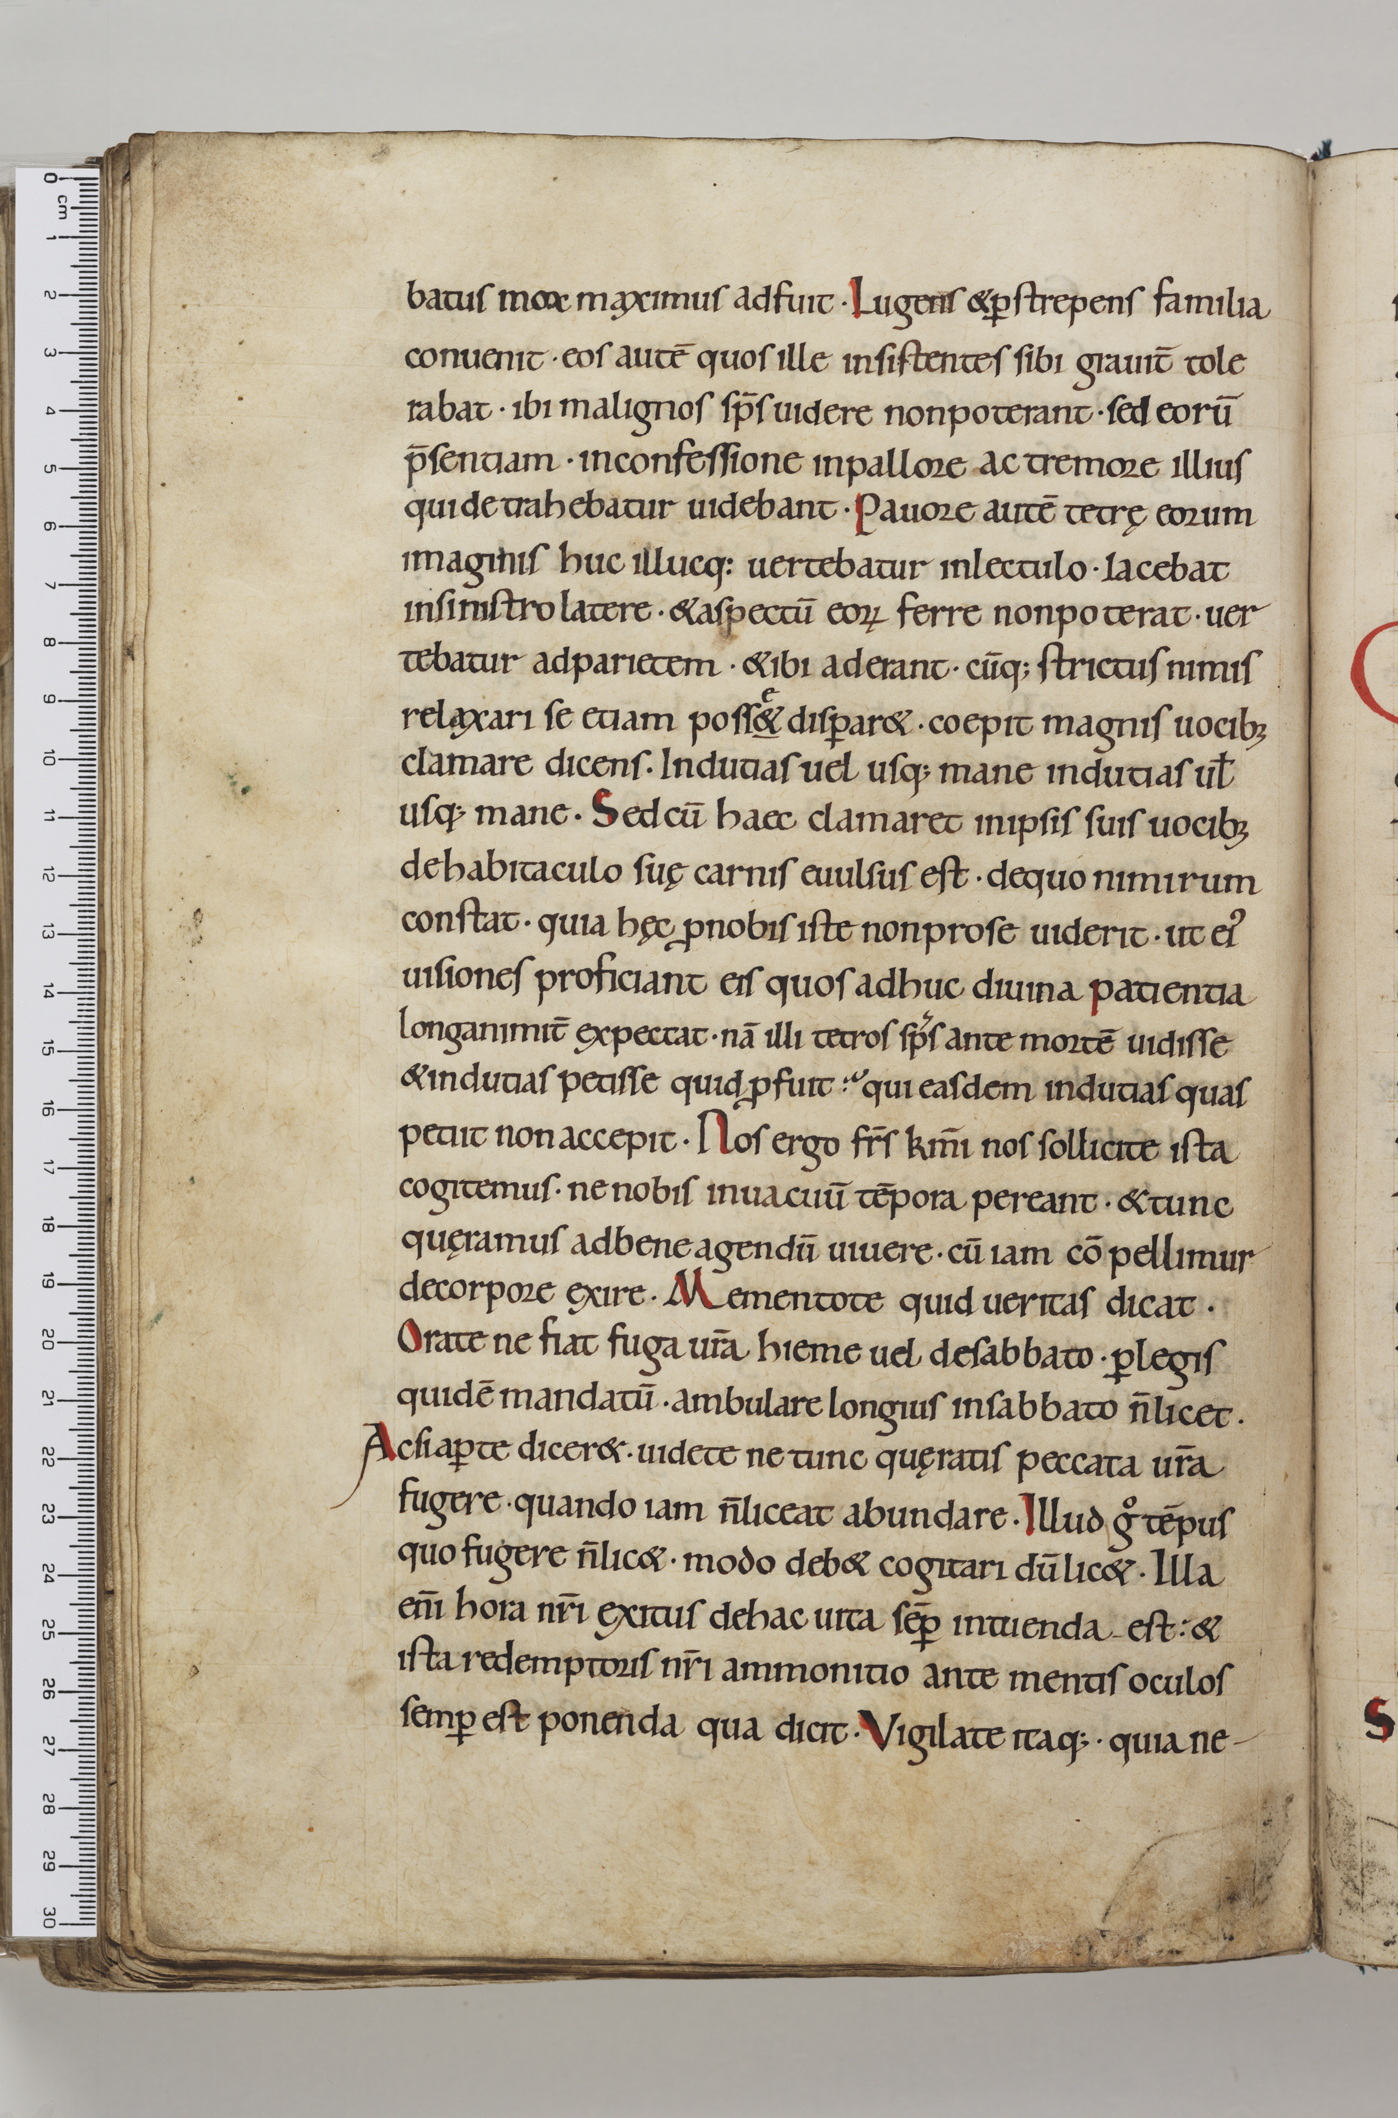 batus mox maximus adfuit · Lugens & ꝑstrepens familia
conuenit · eos autē quos ille insistentes sibi grauit̄ tole
rabat · ibi malignos sp̄s uidere nonpoterant · sed eorū
p̄sentiam · inconfessione inpallore ac tremore illius
qui detrahebatur uidebant · Pauore autē tetrę eorum
imaginis huc illucq: uertebatur inlectulo · Iacebat
insinistro latere · & aspectū eoꝝ ferre nonpoterat · uer
tebatur adparietem · & ibi aderant · cūq; strictus nimis
relaxari se etiam poss&e disꝑar& · coepit magnis uocibꝫ
clamare dicens · Indutias uel usq; mane indutias ul̄
usq; mane · Sed cū haec clamaret inipsis suis uocibꝫ
dehabitaculo suę carnis euulsus est · dequo nimirum
constat · quia hęc ꝓnobis iste nonprose uiderit · ut ei᾽
uisiones proficiant eis quos adhuc diuina patientia
longanimit̄ expectat · nā illi tetros sp̄s ante mortē uidisse
& indutias petisse quid ꝓfuit · qui easdem indutias quas
petiit non accepit · Nos ergo fr̄s km̄i nos sollicite ista
cogitemus · ne nobis inuacuū tēpora pereant · & tunc
quęramus adbene agendū uiuere · cū iam cōpellimur
decorpore exire · Mementote quid ueritas dicat ·
Orate ne fiat fuga ur̄a hieme uel desabbato · ꝑlegis
quidē mandatū · ambulare longius insabbato n̄licet ·
Acsiaꝑte dicer& · uidete ne tunc quęratis peccata ur̄a
fugere · quando iam n̄liceat abundare · Illud g° tēpus
quo fugere n̄lic& · modo deb& cogitari dūlic& · Illa
eni̅ hora nr̄i exitus dehac uita seꝑ̄ intuenda est : &
ista redemptoris nr̄i ammonitio ante mentis oculos
semꝑ est ponenda qua dicit · Vigilate itaq; · quia ne-